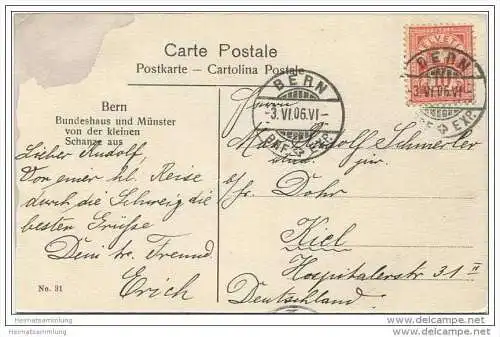 Carte Postale
Postkarte – Cartolina Postale
Bern
Bundeshaus und Münster
von der kleinen
Schanze aus
Lieber Rudolf,
Von einer kl. Reise
durch die Schweiz die
besten Grüsse
Dein tr. Freund
Erich
No. 31
HELVETIA
10
BERN
-3.VI.06.VI-
BRF. EXP.
BERN
-3.VI.06.VI-
EXP.
Herrn
Rudolf Schmerler
stud. jur.
b/Fr. Dohr
Kiel
Hospitalerstr 31 II
Deutschland.
Heimatsammlung
www.heimatsammlung.de
Heimatsammlung
www.heimatsammlung.de